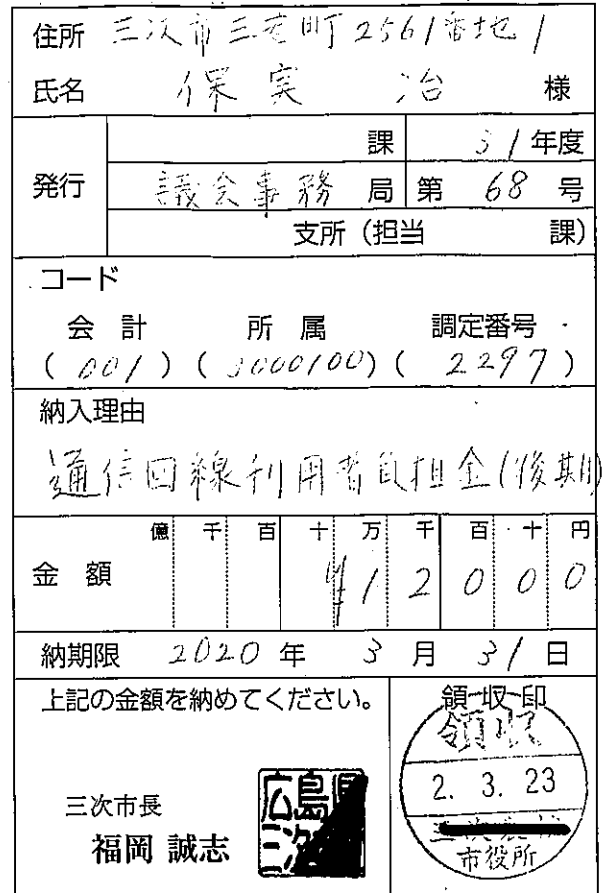 住所 三次市三若町2561番地1
氏名 保実 治 様
課 31年度
発行 議会事務局 第 68 号
支所(担当 課)
コード
会計 所属 調定番号
(001)(3000100)(2297)
納入理由
通信回線利用者負担金(後期)
億 千 百 十 万 千 百 十 円
金額 ¥12000
納期限 2020年 3月 31日
上記の金額を納めてください。
三次市長
福岡 誠志
広島県
三次
領収印
領収
2. 3. 23
市役所